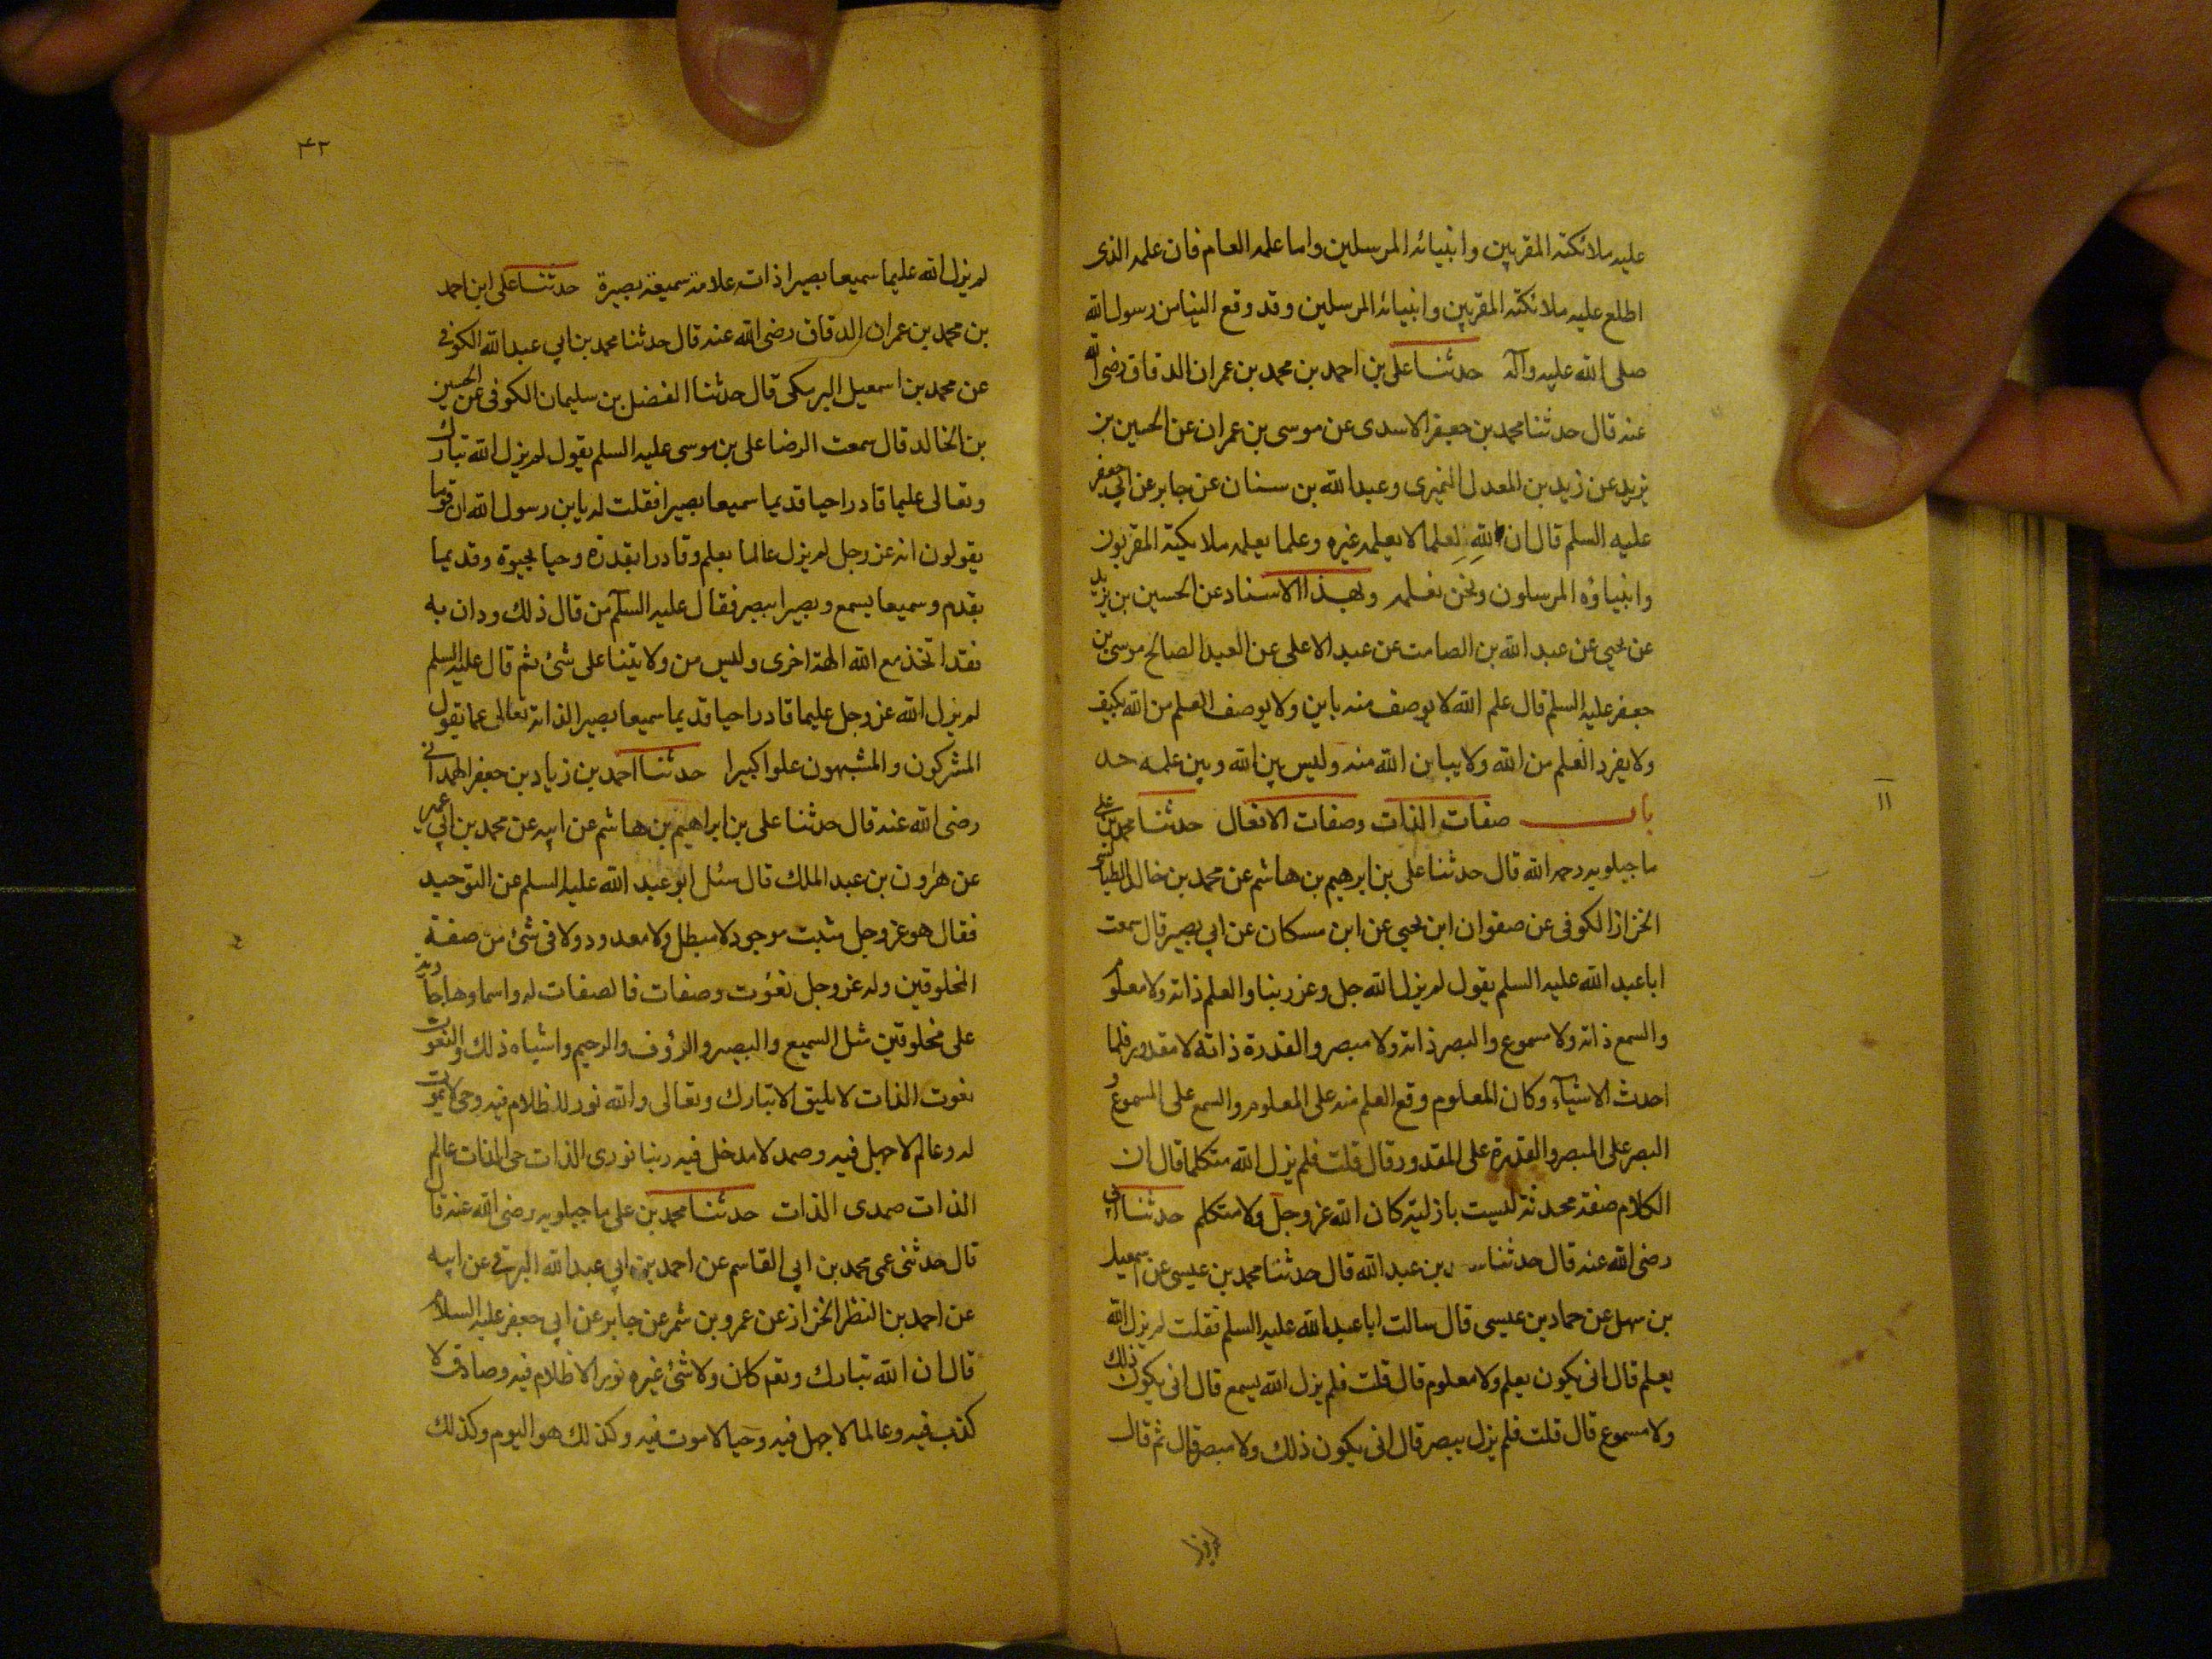 عليه ملائكته المقربين وانبيائه المرسلين واما علمه العام فان علمه الذى
اطلع عليه ملائكته المقربين وانبيائه المرسلين وقد وقع الينا من رسول الله
صلى الله عليه وآله حدثنا على بن احمد بن محمد بن عمران الدقاق رضى الله
عنه قال حدثنا محمد بن جعفر الاسدى عن موسى بن عمران عن الحسين بن
يزيد عن زيد بن المعدل النميرى وعبد الله بن سنان عن جابر عن ابي جعفر
عليه السلم قال ان لله لعلما لا يعلمه غيره وعلما يعلمه ملائكته المقربون
وانبياؤه المرسلون ونحن نعلمه وبهذا الاسناد عن الحسين بن يزيد
عن يحيى عن عبد الله بن الصامت عن عبد الاعلى عن العبد الصالح موسى بن
جعفر عليه السلم قال علم الله لا يوصف منه باين ولا يوصف العلم من الله بكيف
ولا يفرد العلم من الله ولا يباين الله منه وليس بين الله وبين علمه حد
باب صفات الذات وصفات الافعال حدثنا محمد بن على
ماجيلويه رحمه الله قال حدثنا على بن ابرهيم بن هاشم عن محمد بن خالد الطيالسى
الخزاز الكوفى عن صفوان ابن يحيى عن ابن مسكان عن ابي بصير قال سمعت
ابا عبد الله عليه السلم يقول لم يزل الله جل وعز ربنا والعلم ذاته ولا معلوم
والسمع ذاته ولا مسموع والبصر ذاته ولا مبصر والقدرة ذاته لا مقدور فلما
احدث الاشياء وكان المعلوم وقع العلم منه على المعلوم والسمع على المسموع و
البصر على المبصر والقدرة على المقدور قال قلت فلم يزل الله متكلما قال ان
الكلام صفة محدثة ليست بازلية كان الله عز وجل ولا متكلم حدثنا ابي
رضى الله عنه قال حدثنا بن عبد الله قال حدثنا محمد بن عيسى عن اسمعيل
بن سهل عن حماد بن عيسى قال سالت ابا عبد الله عليه السلم فقلت لم يزل الله
يعلم قال انى يكون يعلم ولا معلوم قال قلت فلم يزل الله يسمع قال انى يكون ذلك
ولا مسموع قال قلت فلم يزل يبصر قال انى يكون ذلك ولا مبصر قال ثم قال
١١
٤٢
لم يزل الله عليما سميعا بصيرا ذات علامة سميعة بصيرة حدثنا على ابن احمد
بن محمد بن عمران الدقاق رضى الله عنه قال حدثنا محمد بن ابي عبد الله الكوفى
عن محمد بن اسمعيل البرمكى قال حدثنا الفضل بن سليمان الكوفى عن الحسين
بن الخالد قال سمعت الرضا على بن موسى عليه السلم يقول لم يزل الله تبارك
وتعالى عليما قادرا حيا قديما سميعا بصيرا فقلت له يا بن رسول الله ان قوما
يقولون انه عز وجل لم يزل عالما بعلم وقادرا بقدرة وحيا بحيوة وقديما
بقدم وسميعا بسمع وبصيرا ببصر فقال عليه السلم من قال ذلك ودان به
فقد اتخذ مع الله الهة اخرى وليس من ولايتنا على شئ ثم قال عليه السلم
لم يزل الله عز وجل عليما قادرا حيا قديما سميعا بصيرا لذاته تعالى عما يقول
المشركون والمشبهون علوا كبيرا حدثنا احمد بن زياد بن جعفر الهمدانى
رضى الله عنه قال حدثنا على بن ابراهيم بن هاشم عن ابيه عن محمد بن ابي عمير
عن هرون بن عبد الملك قال سئل ابو عبد الله عليه السلم عن التوحيد
فقال هو عز وجل مثبت موجود لا مبطل ولا معدود ولا فى شئ من صفة
المخلوقين وله عز وجل نعوت وصفات فالصفات له واسماؤها جارية
على مخلوقين مثل السميع والبصير والرؤف والرحيم واشباه ذلك والنعوت
نعوت الذات لا يليق الا تبارك وتعالى والله نور لا ظلام فيه وحى لا موت
له وعالم لا جهل فيه وصمد لا مدخل فيه ربنا نورى الذات حى الذات عالم
الذات صمدى الذات حدثنا محمد بن على ماجيلويه رضى الله عنه قال
قال حدثنى عمى محمد بن ابي القاسم عن احمد بن ابي عبد الله البرقى عن ابيه
عن احمد بن النظر الخزاز عن عمرو بن شمر عن جابر عن ابي جعفر عليه السلام
قال ان الله تبارك وتعم كان ولا شئ غيره نورا لا ظلام فيه وصادق لا
كذب فيه وعالما لا جهل فيه وحيا لا موت فيه وكذلك هو اليوم وكذلك